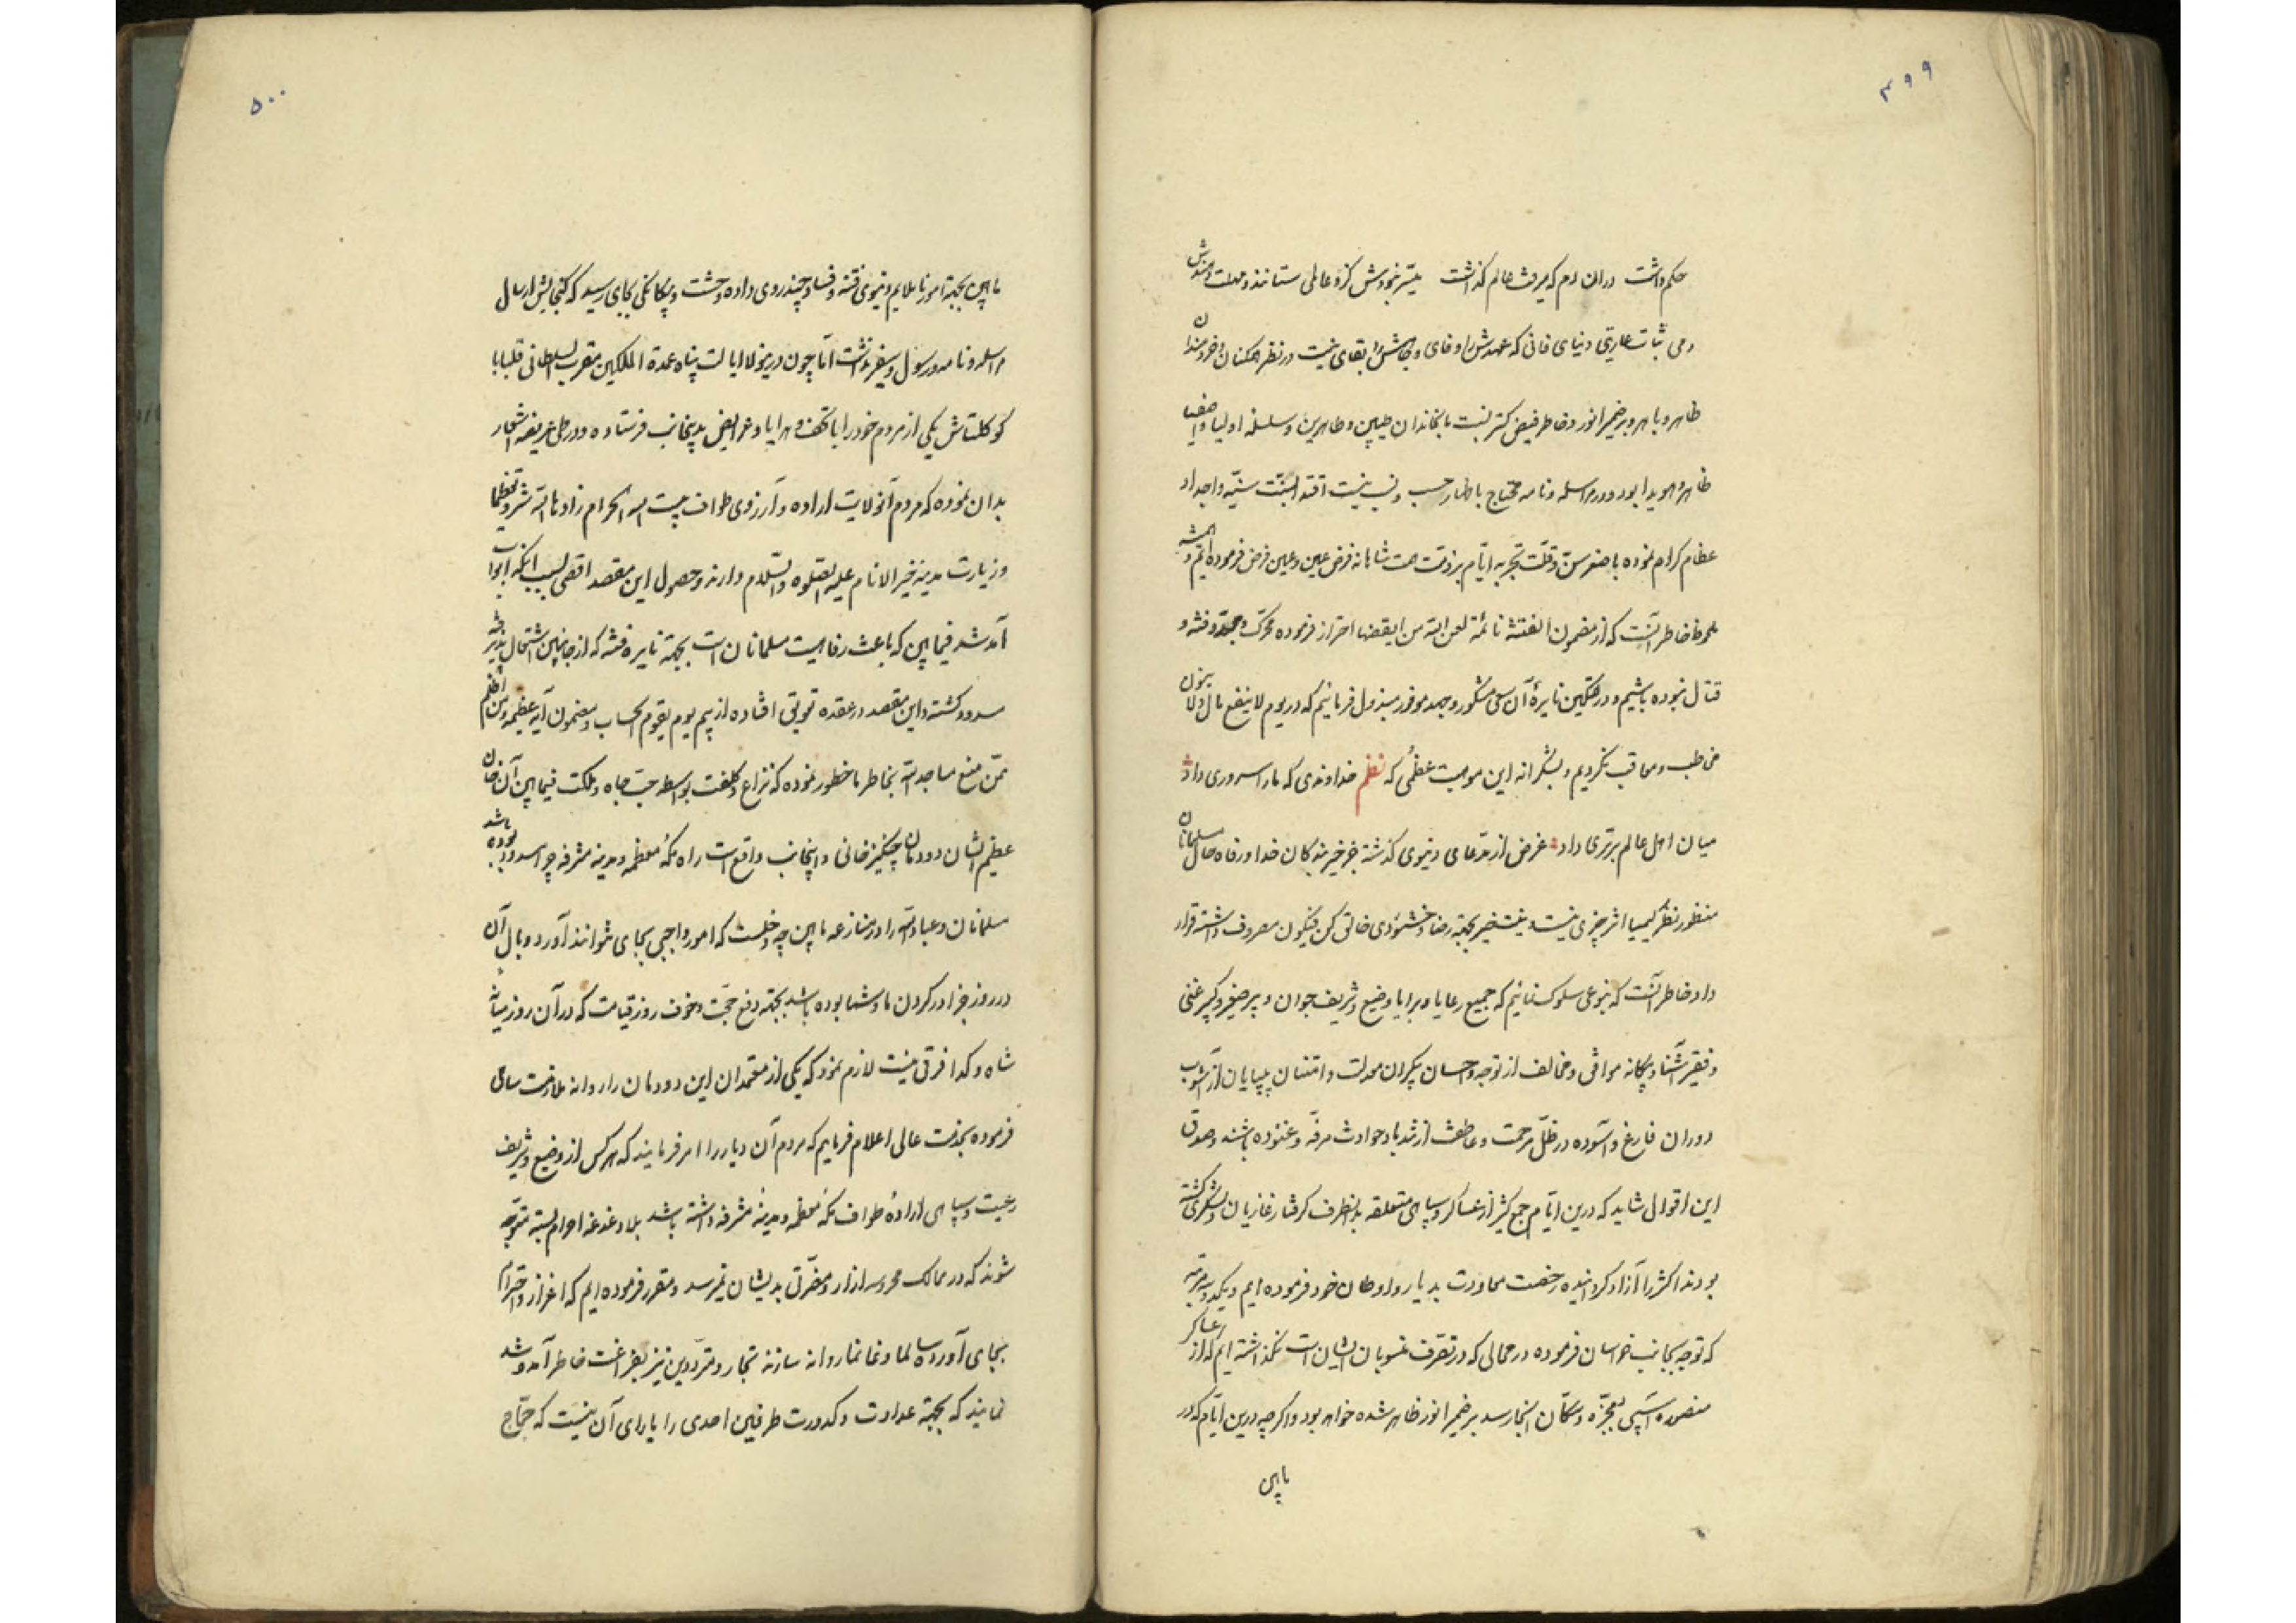 ۴۹۹
حکم داشت دران دم که میرفت و عالم گذاشت میسر نبودش کزو عالمی ستانند و مهلت دهندش دمی
ثبات عاریتی دنیای فانی که عهدش را وفای و بقاش را بقای نیست در نظر همکنان و خردمندان
ظاهر و باهر و بر ضمیر انور و خاطر فیض کستر نسبت باین خاندان طیبین و طاهرین و سلسله اولیا و اصفیا
ظاهر و هویدا بود و در مراسله و نامه محتاج باظهار حسب و نسب نیست اقتدا بسنت سنیه و اجداد
عظام کرام نموده با صغر سن و قلت تجربه ایام بر ذمت همت شاهانه فرض عین و عین فرض فرموده ایم و همیشه
ملحوظ خاطر آنست که از مضمون الفتنة نائمة لعن الله من ایقضها احتراز فرموده محرک و مجدد فتنه و
قتال نبوده باشیم و در تسکین نایرهٔ آن سعی مشکور و جهد موفور مبذول فرمائیم که در یوم لا ینفع مال ولا بنون
مخاطب و معاقب نکردیم و بشکرانه این موهبت عظمی که نظم خداوندی که ما را سروری داد
میان اهل عالم برتری داد غرض از مدعای دنیوی کذشته جز خیر بندکان خدا و رفاه حال مسلمانان
منظور نظر کیمیا اثر چیزی نیست و نیت خیر بجهة رضا و خشنودی خالق کن فیکون مصروف داشته قرار
داد خاطر آنست که بنوعی سلوک نمائیم که جمیع رعایا و برایا وضیع و شریف جوان و پیر صغیر و کبیر غنی
و فقیر آشنا و بیکانه موافق و مخالف از توجه و احسان بیکران معدلت و امتنان بی پایان از آشوب
دوران فارغ و آسوده در ظل مرحمت و عاطفت از شداید حوادث مرفه و غنوده باشند و صدق
این اقوال شاید که درین ایام جمع کثیر از عساکر و سپاهی متعلقه بدانطرف کرفتار غازیان و لشکری کشته
بودند اکثر را آزاد کردانیده رخصت معاودت بدیار و اوطان خود فرموده ایم و یکدو مرتبه
که توجه بجانب خراسان فرموده در محالی که در تصرف منسوبان ایشان است نکذاشته ایم که از عساکر
منصوره آسیبی بعجزه و سکان آنجا رسد بر ضمیر انور ظاهر شده خواهد بود و اکرچه درین ایام که در
مابین
۵۰۰
مابین بجهة امور ناملایم دنیوی فتنه و فساد چند روی داده وحشت و بیکانکی بجای رسید که کنجایش ارسال
مراسله و نامه و رسول و سفیر نداشت اما چون درینولا ایالت پناه عمدة الملکین مقرب السلطانی قلبابا
کوکلتاش یکی از مردم خود را با تحف و هدایا و عرایض بدینجانب فرستاده و در طی عریضه اشعار
بدان نموده که مردم آنولایت اراده و آرزوی طواف بیت الله الحرام زادها الله شرفا و تعظیما
و زیارت مدینه خیر الانام علیه الصلوة والسلام دارند و حصول این مقصد اقصی بسبب آنکه ابواب
آمد شد فیمابین که باعث رفاهیت مسلمانان است بجهة نایره فتنه که از جانبین اشتعال پذیر شد
مسدود کشته و این مقصد در عقده تعویق افتاده از بیم یوم یقوم الحساب و مضمون آیه عظیمه و من اظلم
ممن منع مساجد الله بخاطر ما خطور نموده که نزاع و کلفت بواسطه حب جاه و ملکت فیمابین آن خان
عظیم الشان دودمان چنکیزخانی و اینجانب واقع است راه مکه معظمه و مدینه مشرفه چرا مسدود بوده باشد
مسلمانان و عباد الله را در منازعه مابین چه دخلست که امور واجبی بجای نتوانند آورد و وبال آن
در روز جزا در کردن ما و شما بوده باشد بجهة دفع حجت و خوف روز قیامت که در آن روز میان
شاه و کدا فرقی نیست لازم نمود که یکی از معتمدان این دودمان را روانه ملازمت سامی
فرموده بخدمت عالی اعلام فرمایم که مردم آن دیار را امر فرمایند که هر کس از وضیع و شریف
رعیت و سپاهی ارادهٔ طواف مکه معظمه و مدینهٔ مشرفه داشته باشد بلا دغدغه احرام بسته متوجه
شوند که در ممالک محروسه ازار و مضرتی بدیشان نمیرسد و مقرر فرموده ایم که اعزاز و احترام
بجای آورده سالما و غانما روانه سازند تجار و مترددین نیز بفراغت خاطر آمد و شد
نمایند که بجهة عداوت و کدورت طرفین احدی را یارای آن نیست که حجاج